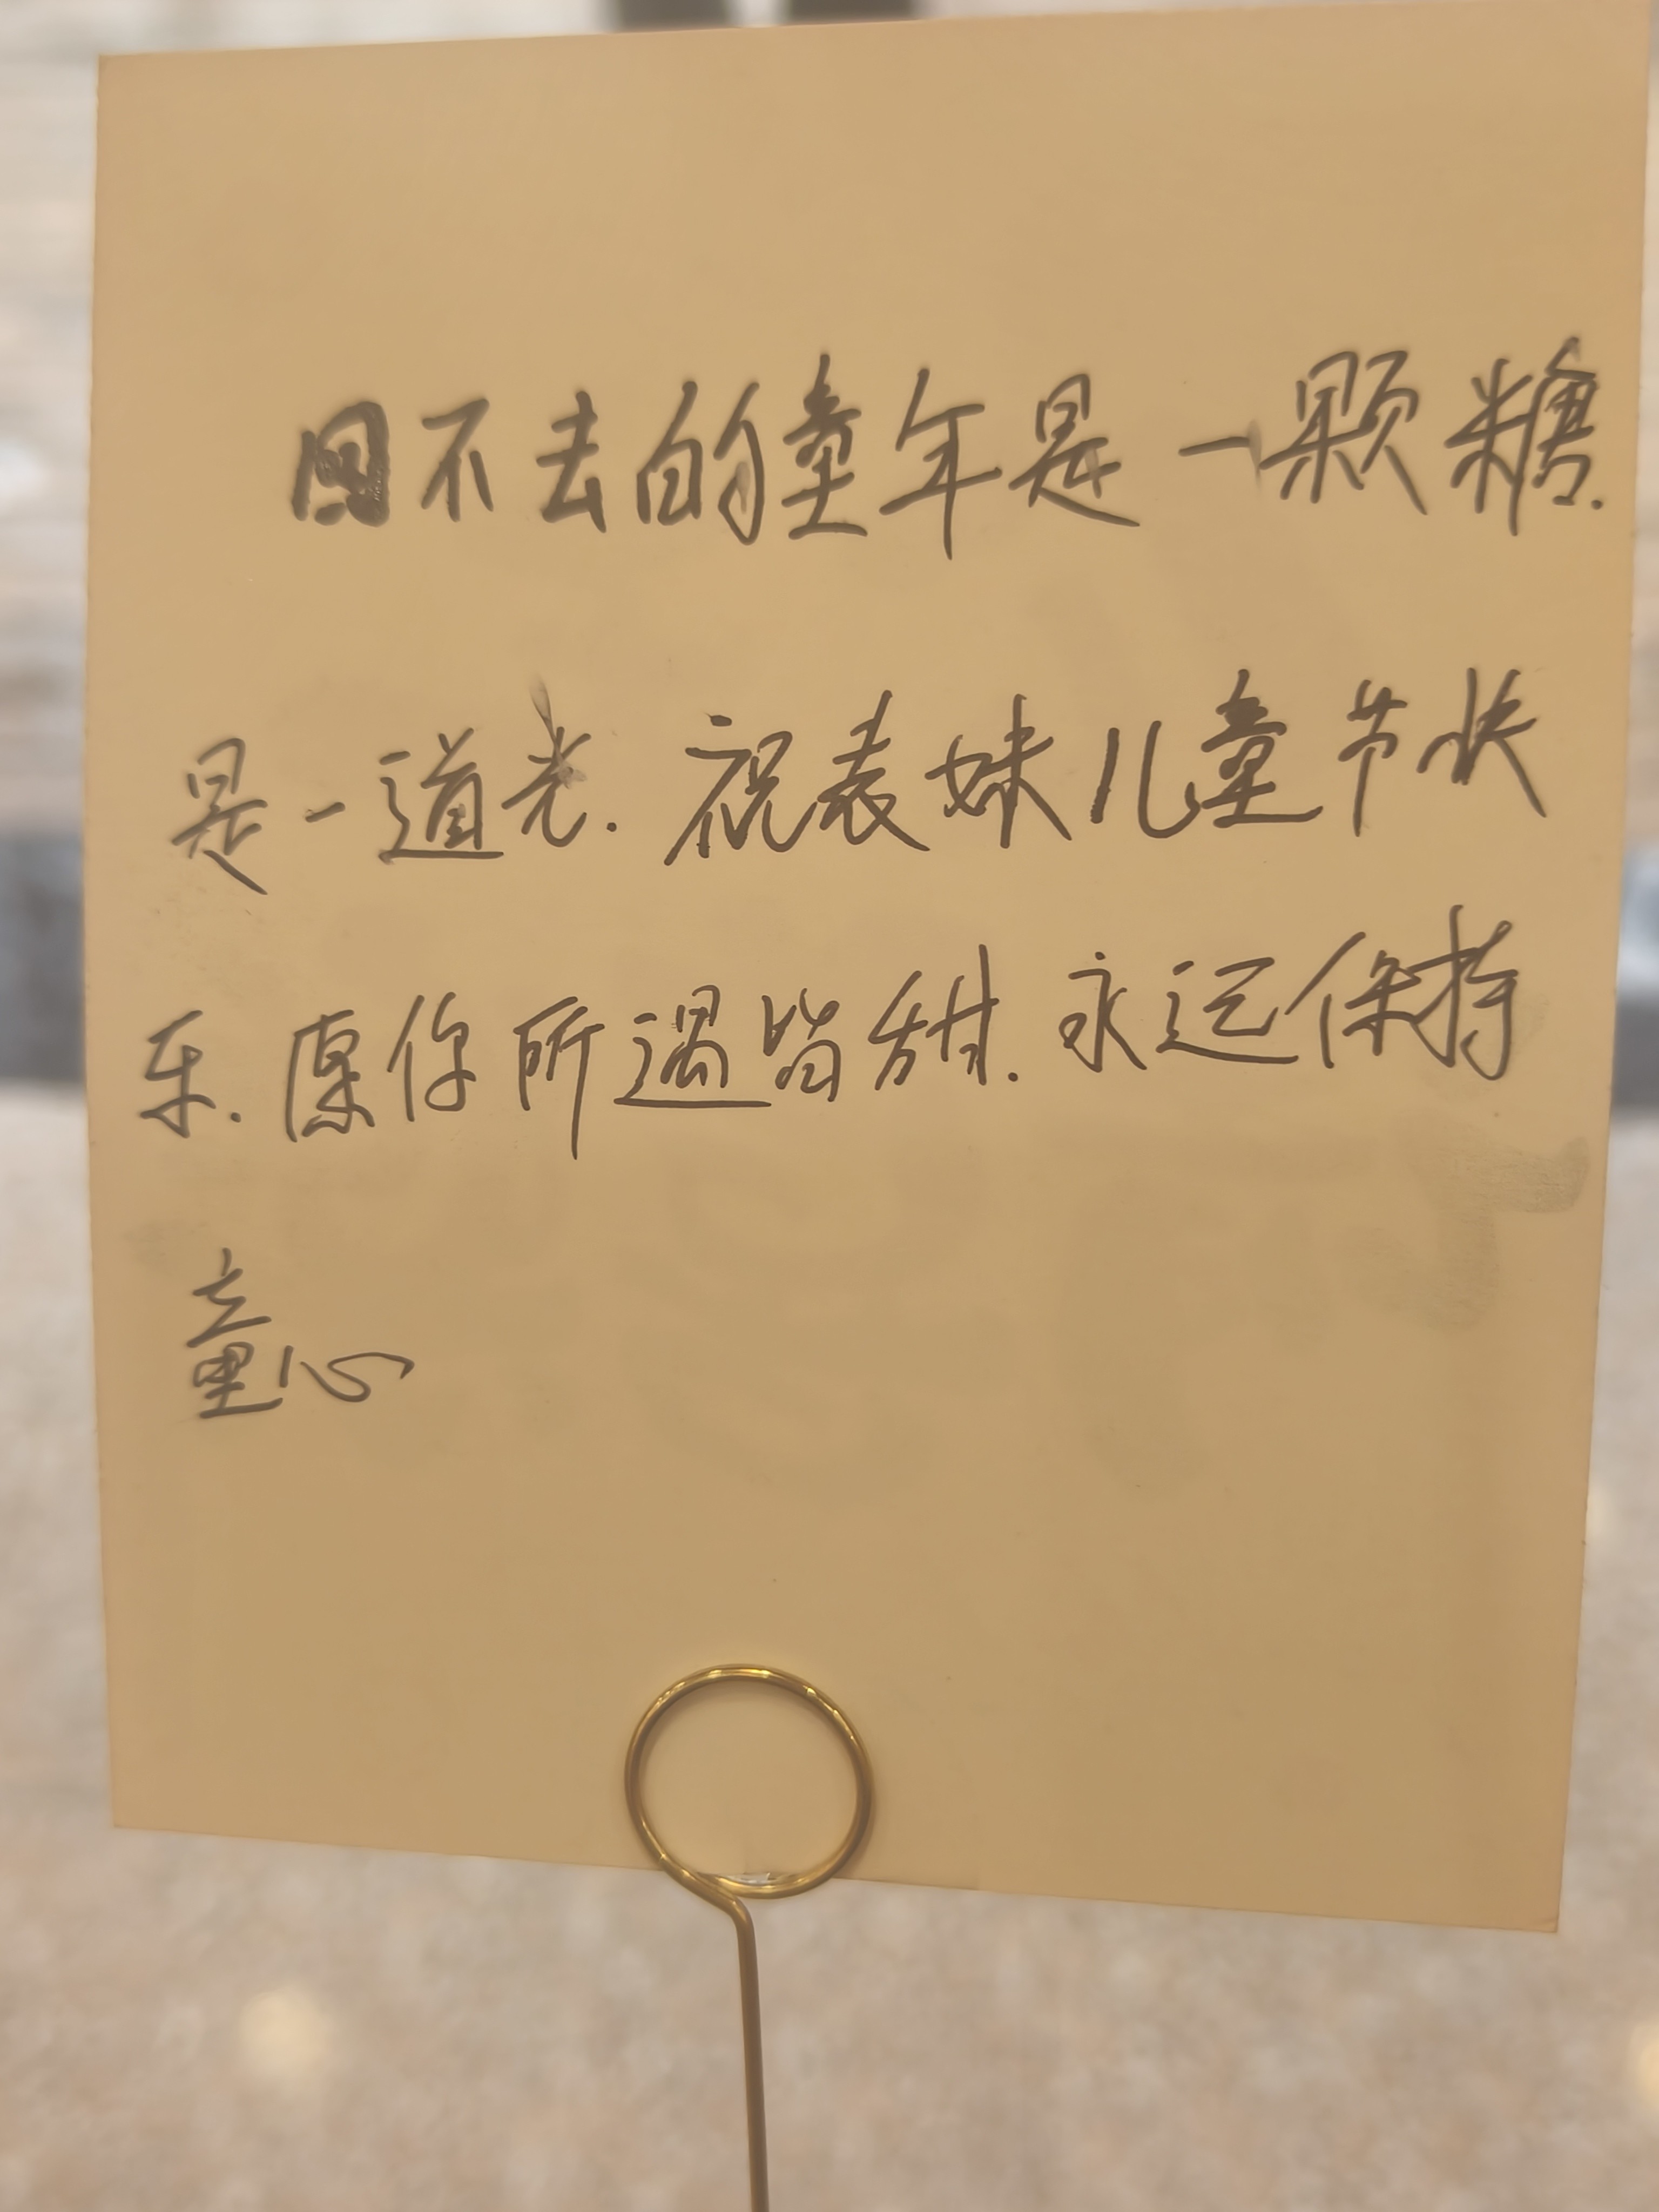 回不去的童年是一颗糖.
是一道光.祝表妹儿童节快
乐.愿你所遇皆甜.永远保持
童心